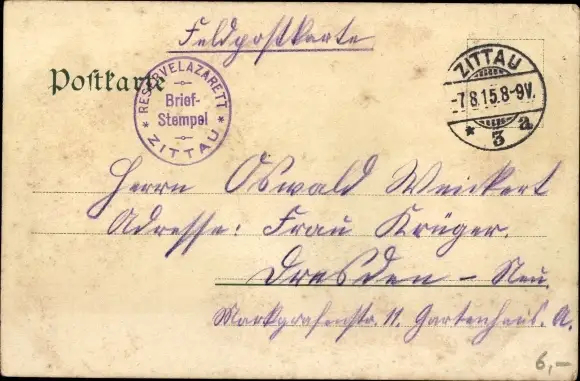 Feldpostkarte
Postkarte
RESERVELAZARETT
Brief-
Stempel
* ZITTAU *
ZITTAU
-7.8.15.8-9V.
* 3 a
Herrn Oswald Weickert
Adresse: Frau Krüger.
Dresden - Neu.
Markgrafenstr. 11. Gartenhaus. A.
6,-